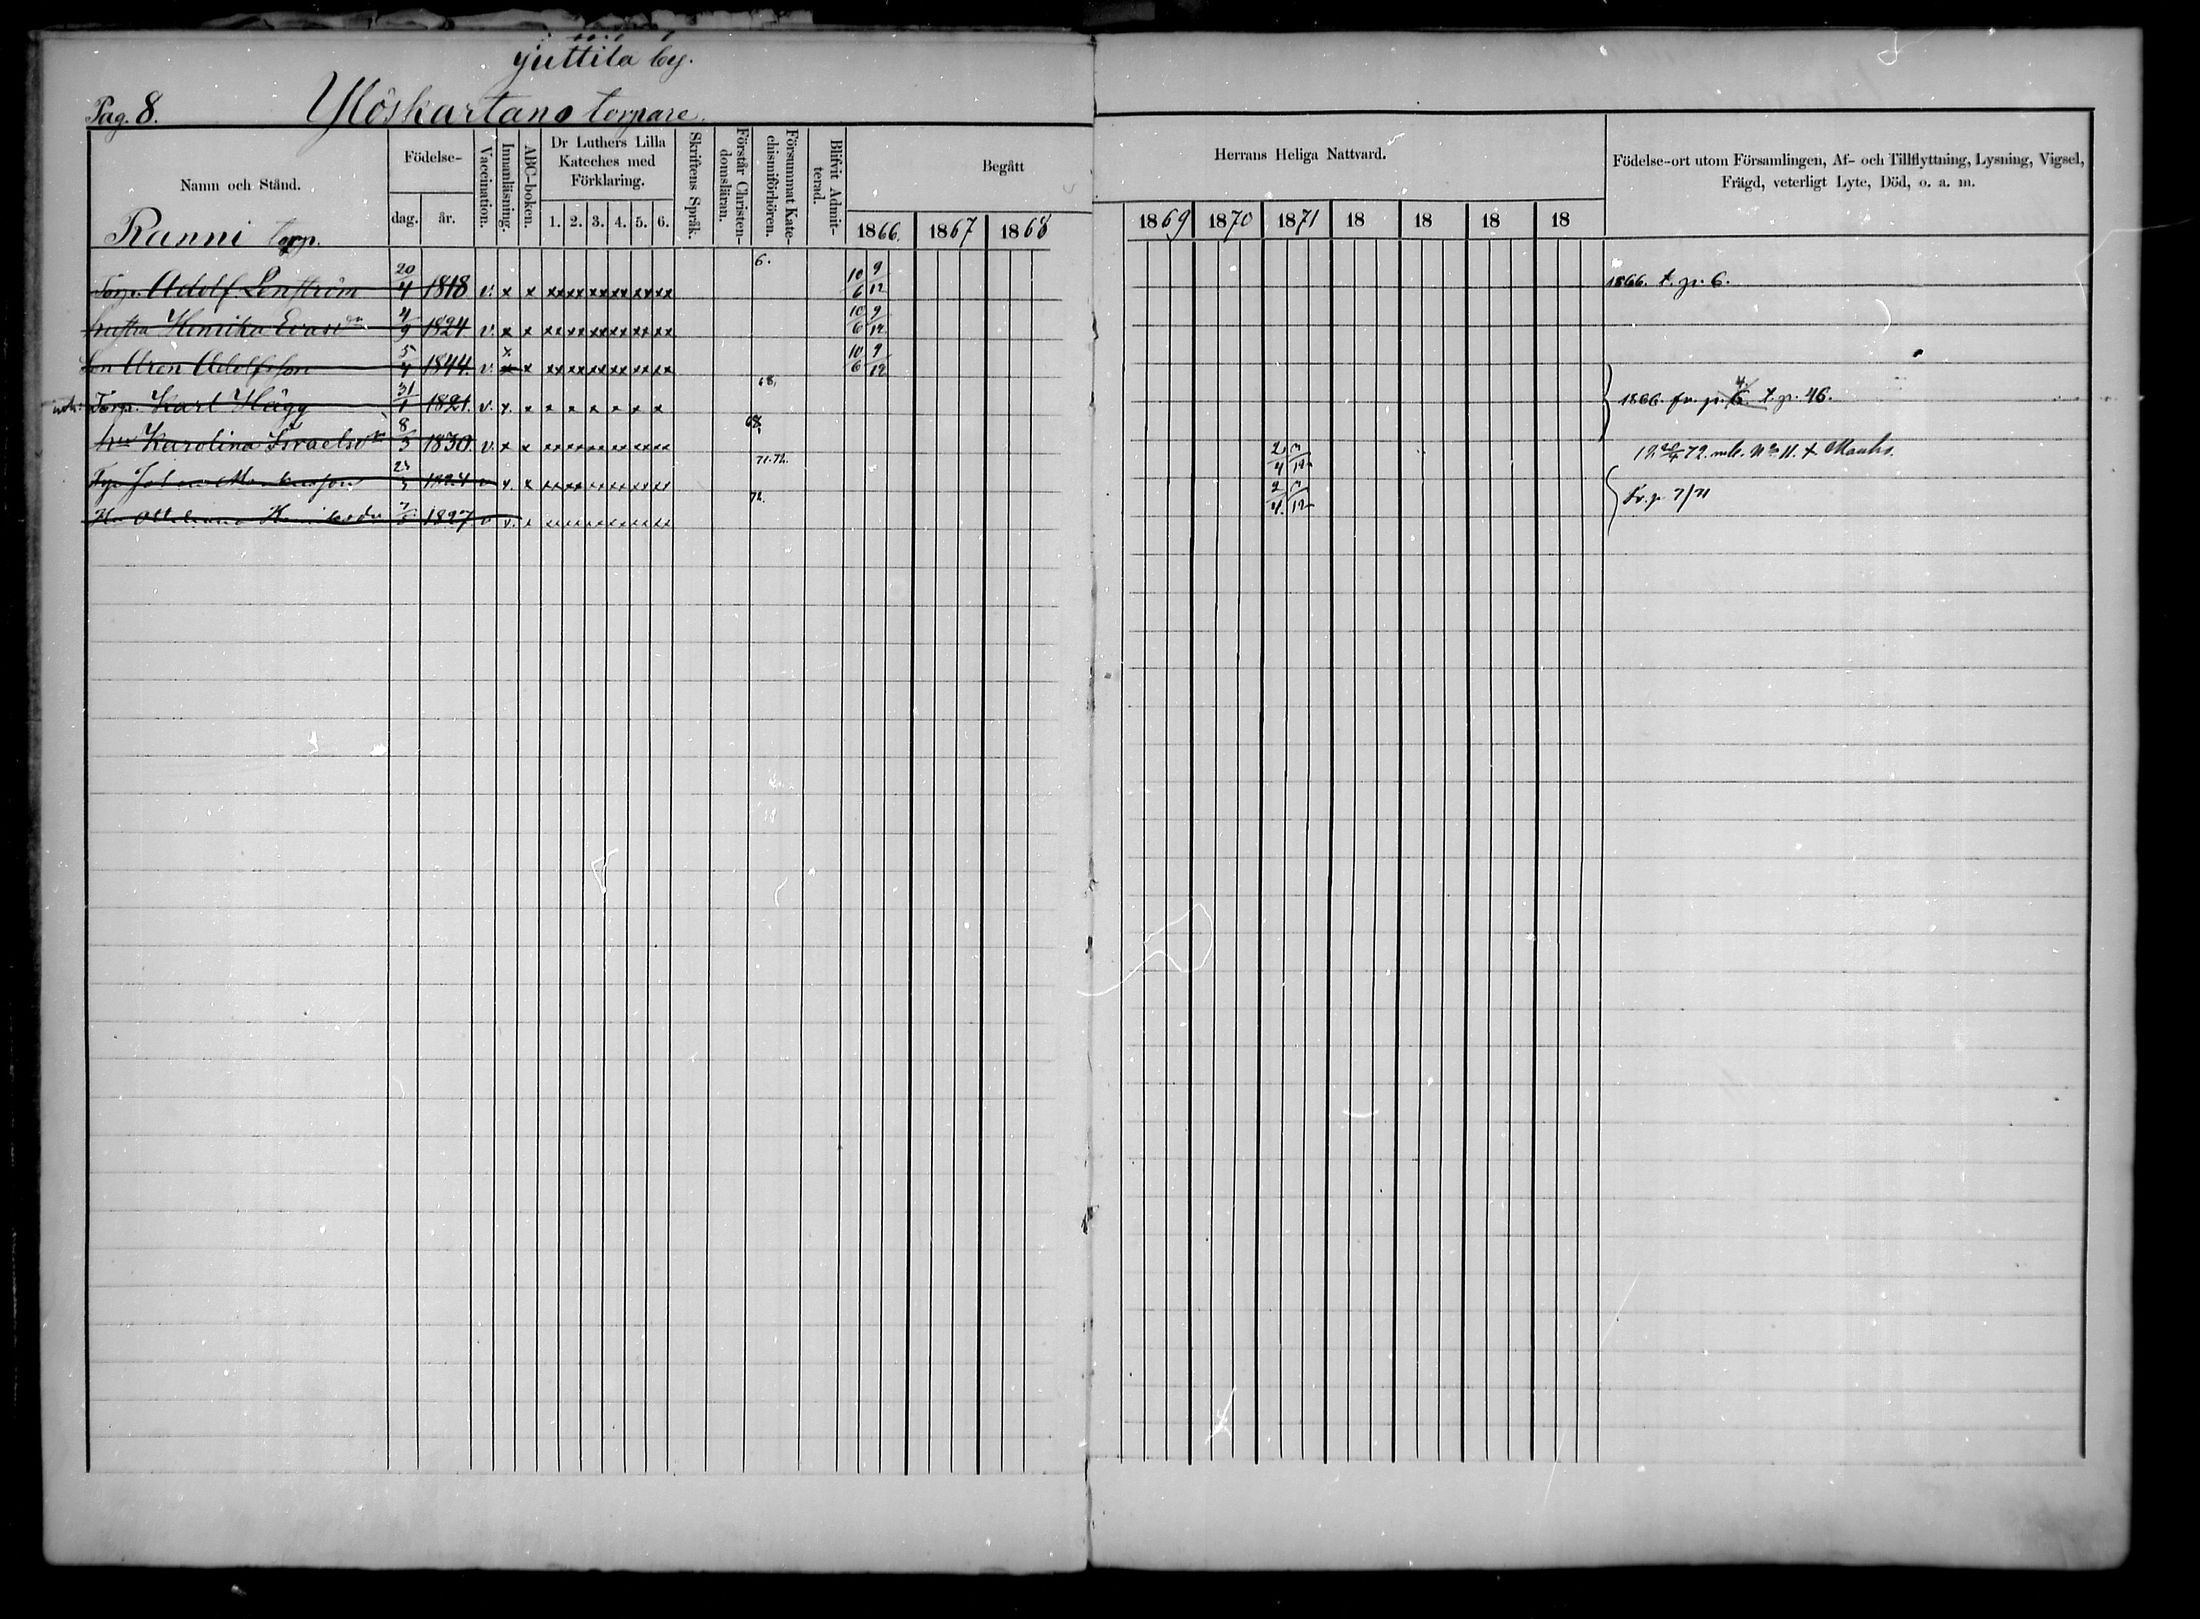 Juttila by.
Pag. 8. Ylöskartano torpare.
Namn och Stånd.
Födelse-
dag. år.
Vaccination.
Innanläsning.
ABC-boken.
Dr Luthers Lilla Kateches med Förklaring.
1. 2. 3. 4. 5. 6.
Skriftens Språk.
Förstår Christendomsläran.
Försummat Katechismiförhören.
Blifvit Admitterad.
Begått Herrans Heliga Nattvard.
1866. 1867 1868 1869 1870 1871 18 18 18 18
Födelse-ort utom Församlingen, Af- och Tillflyttning, Lysning, Vigsel, Frägd, veterligt Lyte, Död, o. a. m.
Ranni torp.
Torp. Adolf Lenström 20/4 1818 v. x x xx xx xx xx xx xx 6. 10/6 9/12 1866. t. p. 6.
hustru Henrika Evasdr 4/9 1824 v. x x xx xx xx xx xx xx 10/6 9/12
Son Aron Adolfsson 5/4 1844. v. x x xx xx xx xx xx xx 10/6 9/12
Torp. Karl Hägg 31/1 1821. v. x. x x x x x x x 68. 1866. fr. p. 6. t. p. 46.
hu Karolina Israelsdr 8/3 1830. v. x x xx xx xx xx xx xx 68. 2/4
Johan 23 1824 v. x 71.72. 2/4 Fr. p. 7/71
Hu 1827. v v. 72.